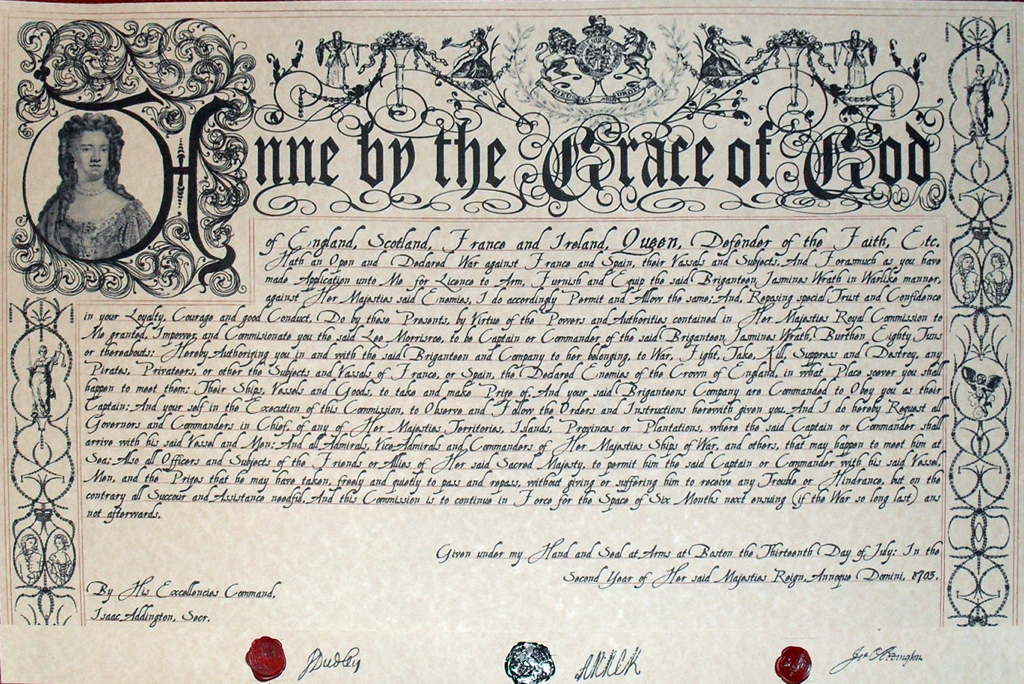 Anne by the Grace of God
of England, Scotland, France and Ireland, Queen, Defender of the Faith, Etc.
Hath an Open and Declared War against France and Spain, their Vassals and Subjects. And Forasmuch as you have
made Application unto Me for Licence to Arm, Furnish and Equip the said Briganteen Jasmines Wrath in Warlike manner,
against Her Majesties said Enemies, I do accordingly Permit and Allow the same; And, Reposing special Trust and Confidence
in your Loyalty, Courage and good Conduct, Do by these Presents, by Virtue of the Powers and Authorities contained in Her Majesties Royal Commission to
Me granted, Impower and Commissionate you the said Lee Morrisroe, to be Captain or Commander of the said Briganteen Jasmines Wrath, Burthen Eighty Tuns
or thereabouts: Hereby Authorizing you in and with the said Briganteen and Company to her belonging, to War, Fight, Take, Kill, Suppress and Destroy, any
Pirates, Privateers, or other the Subjects and Vassals of France, or Spain, the Declared Enemies of the Crown of England, in what Place soever you shall
happen to meet them; Their Ships, Vessels and Goods, to take and make Prize of. And your said Briganteens Company are Commanded to Obey you as their
Captain: And your self in the Execution of this Commission, to Observe and Follow the Orders and Instructions herewith given you. And I do hereby Request all
Governors and Commanders in Chief, of any of Her Majesties Territories, Islands, Provinces or Plantations, where the said Captain or Commander shall
arrive with his said Vessel and Men; And all Admirals, Vice-Admirals and Commanders of Her Majesties Ships of War, and others, that may happen to meet him at
Sea; Also all Officers and Subjects of the Friends or Allies of Her said Sacred Majesty, to permit him the said Captain or Commander with his said Vessel,
Men, and the Prizes that he may have taken, freely and quietly to pass and repass, without giving or suffering him to receive any Trouble or Hindrance, but on the
contrary all Succour and Assistance needful. And this Commission is to continue in Force for the Space of Six Months next ensuing (if the War so long last) ans
not afterwards.
Given under my Hand and Seal at Arms at Boston the Thirteenth Day of July: In the
Second Year of Her said Majesties Reign, Annoque Domini, 1703.
By His Excellencies Command,
Isaac Addington, Secr.
JDudley